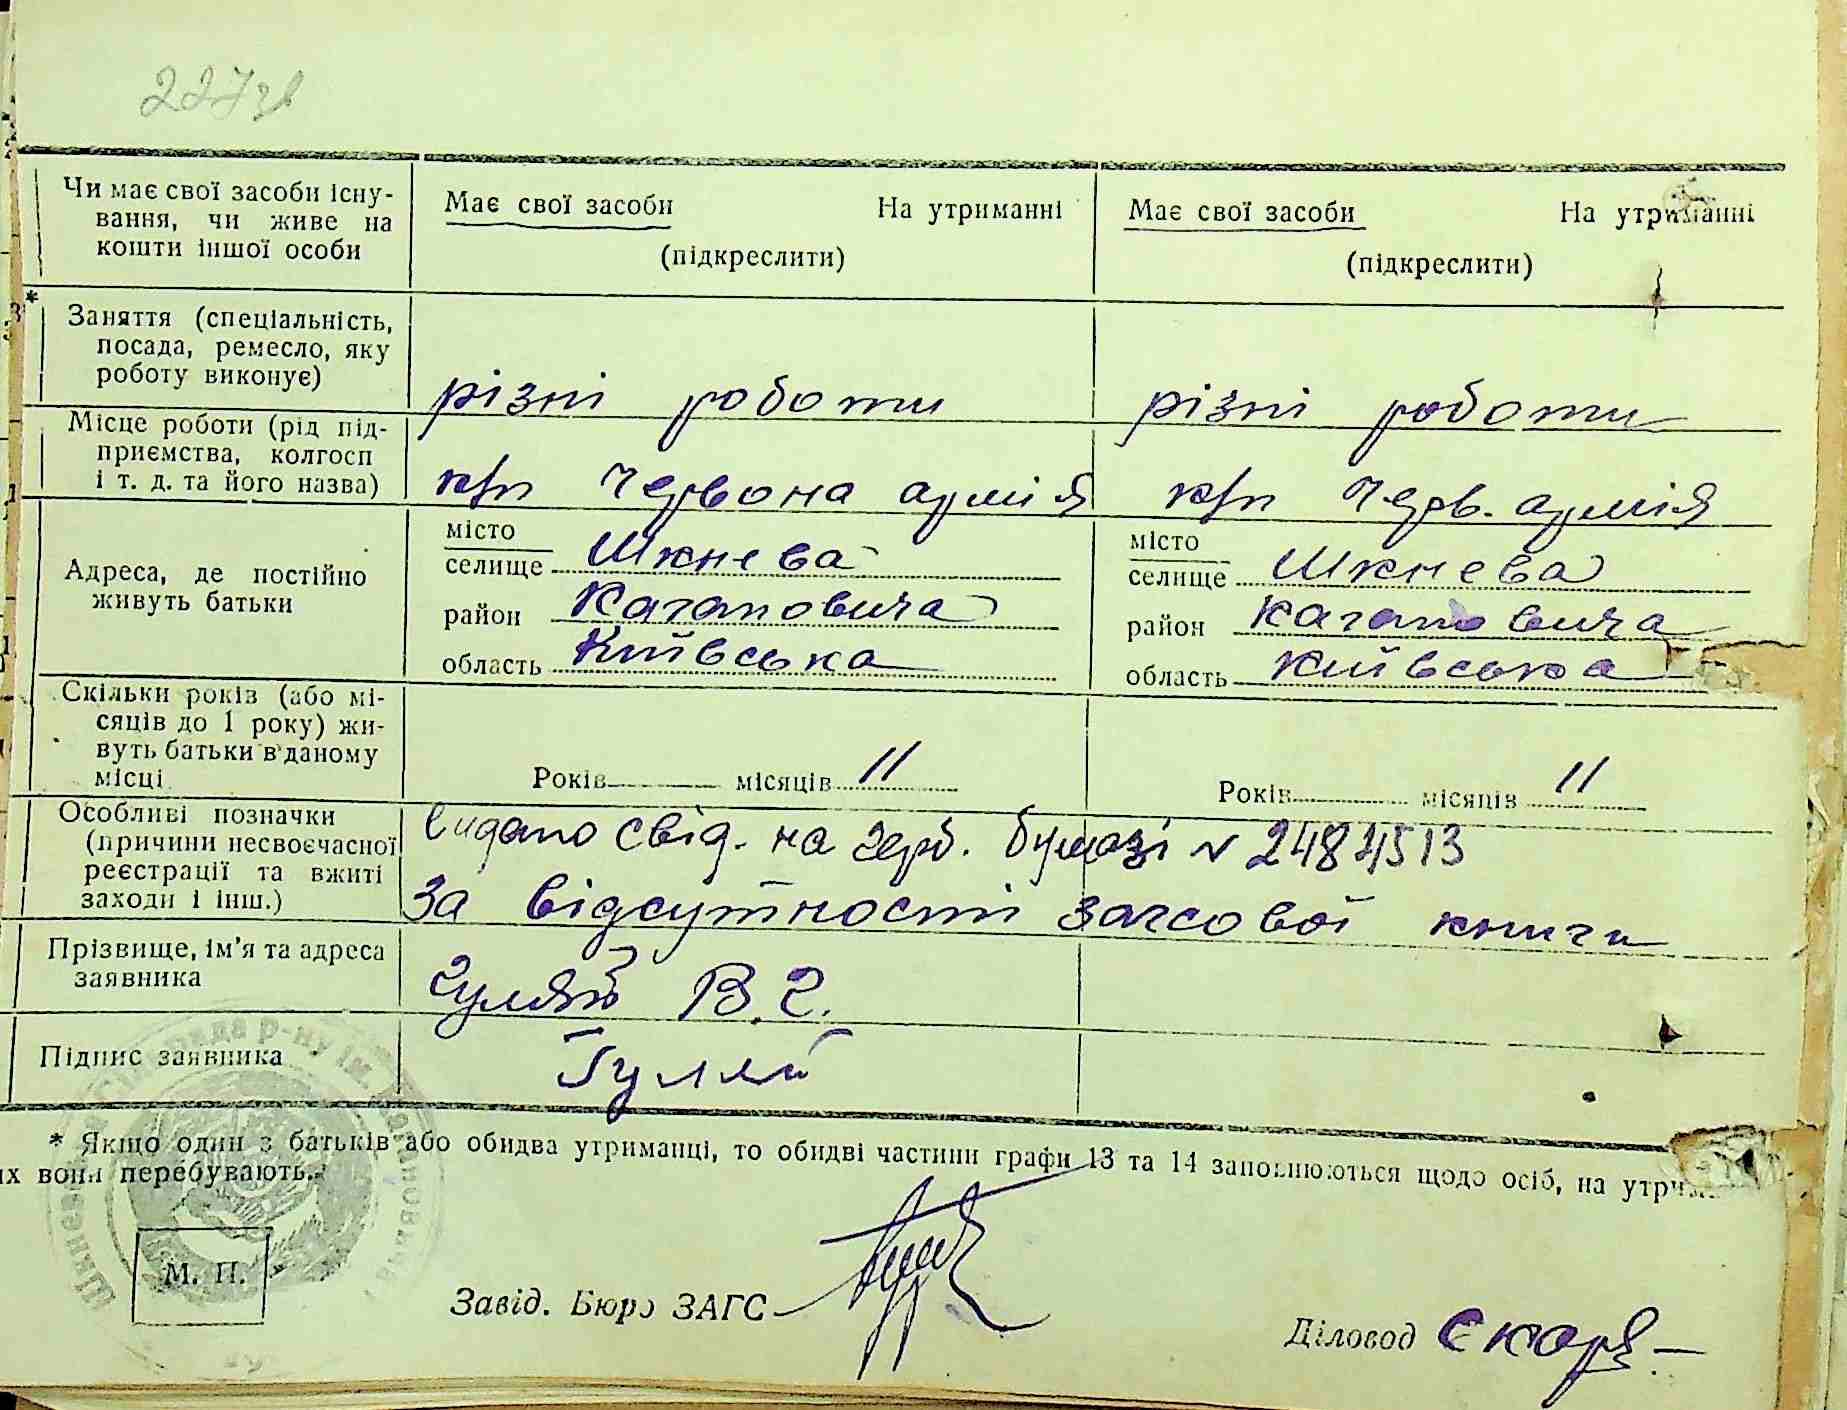 227зв
Чи має свої засоби існу-
вання, чи живе на
кошти іншої особи
Має свої засоби На утриманні
(підкреслити)
Має свої засоби На утриманні
(підкреслити)
* Заняття (спеціальність,
посада, ремесло, яку
роботу виконує)
різні роботи
різні роботи
Місце роботи (рід під-
приємства, колгосп
і т. д. та його назва)
к/п Червона армія
к/п Черв. армія
Адреса, де постійно
живуть батьки
місто
селище Шкнева
район Кагановича
область Київська
місто
селище Шкнева
район Кагановича
область Київська
Скільки років (або мі-
сяців до 1 року) жи-
вуть батьки в даному
місці
Років місяців 11
Років місяців 11
Особливі позначки
(причини несвоєчасної
реєстрації та вжиті
заходи і інш.)
Видано свід. на герб. бумазі N 2484513
за відсутності загсової книги
Прізвище, ім'я та адреса
заявника
Гуляй В. Г.
Підпис заявника
Гуляй
* Якщо один з батьків або обидва утриманці, то обидві частини графи 13 та 14 заповнюються щодо осіб, на утрим
их вони перебувають.
М. П.
Завід. Бюро ЗАГС
Діловод